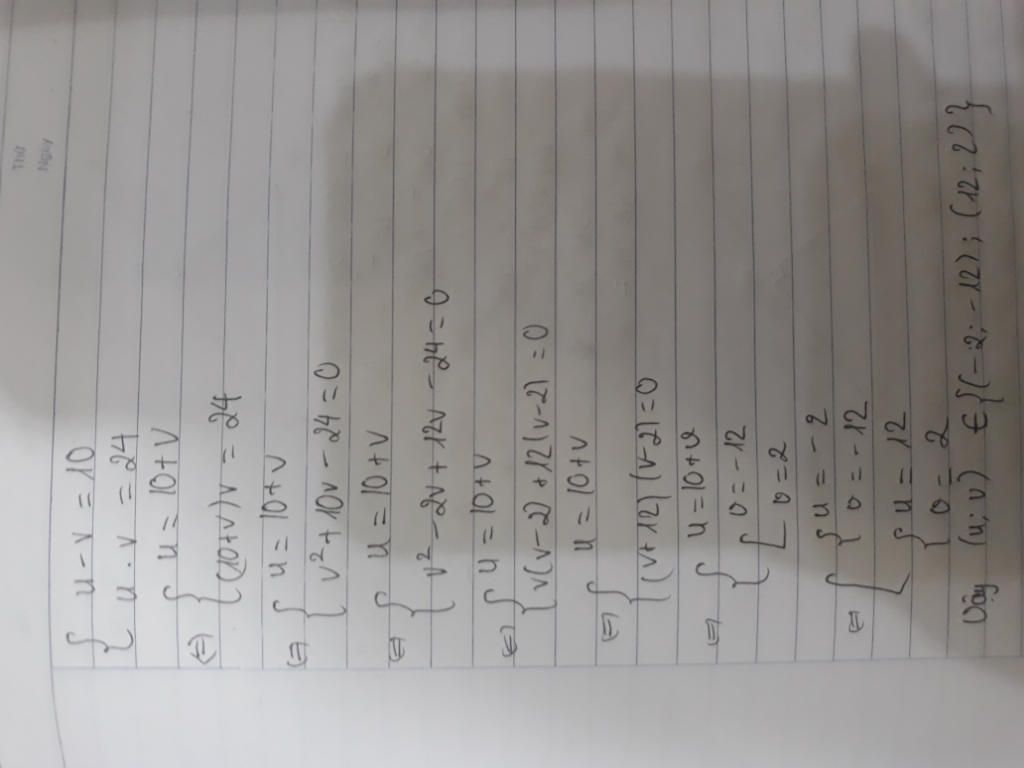 Thứ
Ngày
{ u - v = 10
{ u . v = 24
⇔ { u = 10 + v
{ (10+v)v = 24
⇔ { u = 10 + v
{ v² + 10v - 24 = 0
⇔ { u = 10 + v
{ v² - 2v + 12v - 24 = 0
⇔ { u = 10 + v
{ v(v-2) + 12(v-2) = 0
⇔ { u = 10 + v
{ (v+12)(v-2) = 0
⇔ { u = 10 + v
{ [ v = -12
[ v = 2
⇔ [ { u = -2
{ v = -12
[ { u = 12
{ v = 2
Vậy (u; v) ∈ {(-2; -12); (12; 2)}